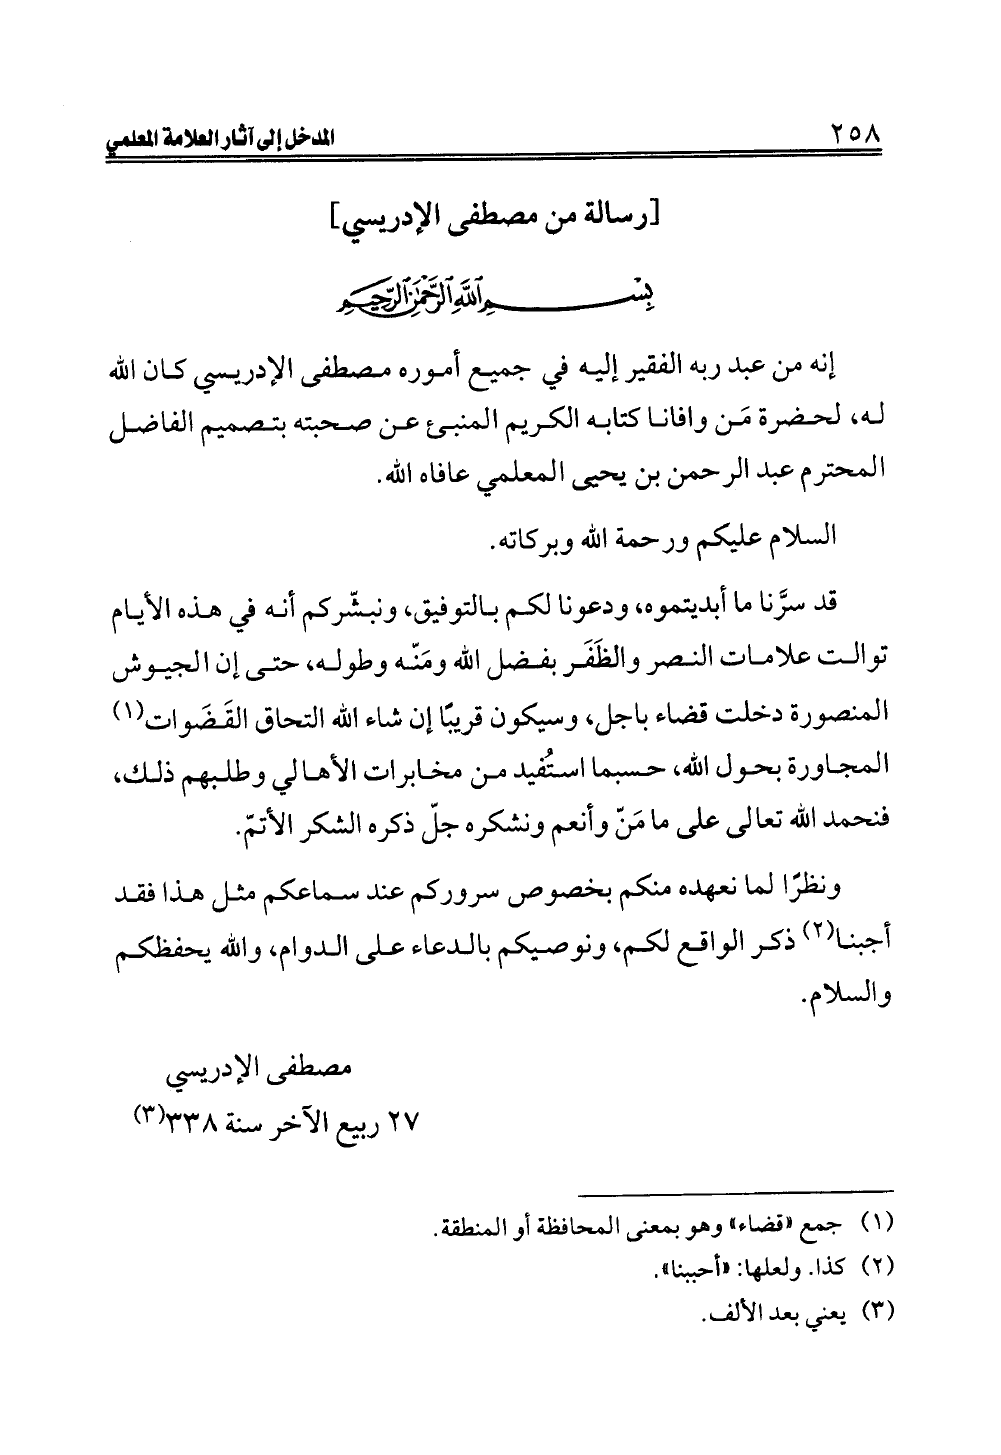 ٢٥٨
المدخل إلى آثار العلامة المعلمي
[رسالة من مصطفى الإدريسي]
بِسْمِ اللَّهِ الرَّحْمَٰنِ الرَّحِيمِ
إنه من عبد ربه الفقير إليه في جميع أموره مصطفى الإدريسي كان الله
له، لحضرة مَن وافانا كتابه الكريم المنبئ عن صحبته بتصميم الفاضل
المحترم عبد الرحمن بن يحيى المعلمي عافاه الله.
السلام عليكم ورحمة الله وبركاته.
قد سرَّنا ما أبديتموه، ودعونا لكم بالتوفيق، ونبشّركم أنه في هذه الأيام
توالت علامات النصر والظَفَر بفضل الله ومَنّه وطوله، حتى إن الجيوش
المنصورة دخلت قضاء باجل، وسيكون قريبًا إن شاء الله التحاق القَضَوات(١)
المجاورة بحول الله، حسبما استُفيد من مخابرات الأهالي وطلبهم ذلك،
فنحمد الله تعالى على ما مَنّ وأنعم ونشكره جلّ ذكره الشكر الأتمّ.
ونظرًا لما نعهده منكم بخصوص سروركم عند سماعكم مثل هذا فقد
أجبنا(٢) ذكر الواقع لكم، ونوصيكم بالدعاء على الدوام، والله يحفظكم
والسلام.
مصطفى الإدريسي
٢٧ ربيع الآخر سنة ٣٣٨(٣)
(١) جمع «قضاء» وهو بمعنى المحافظة أو المنطقة.
(٢) كذا. ولعلها: «أحببنا».
(٣) يعني بعد الألف.